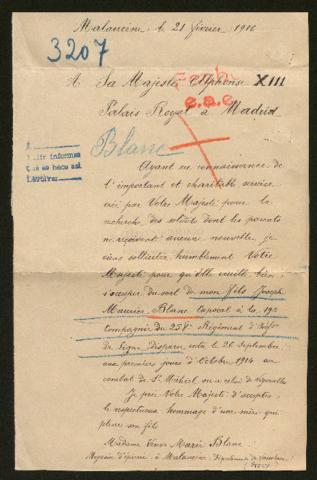 Malaucène le 21 février 1916
3207
A Sa Majesté Alphonse XIII
Palais Royal à Madrid
Blanc
Ayant eu connaissance de
l'important et charitable service
créé par Votre Majesté pour la
recherche des soldats dont les parents
ne reçoivent aucune nouvelle, je
viens solliciter humblement Votre
Majesté pour qu'elle veuille bien
s'occuper du sort de mon fils Joseph
Blanc caporal à la 19e
Compagnie du 258e Régiment d'Infrie
de Ligne disparu le 26 Septembre
aux premiers jours d'Octobre 1914 au
combat de St Mihiel
Je prie Votre Majesté d'accepter
le respectueux hommage d'une mère qui
pleure son fils
Madame Veuve Marie Blanc
à Malaucène